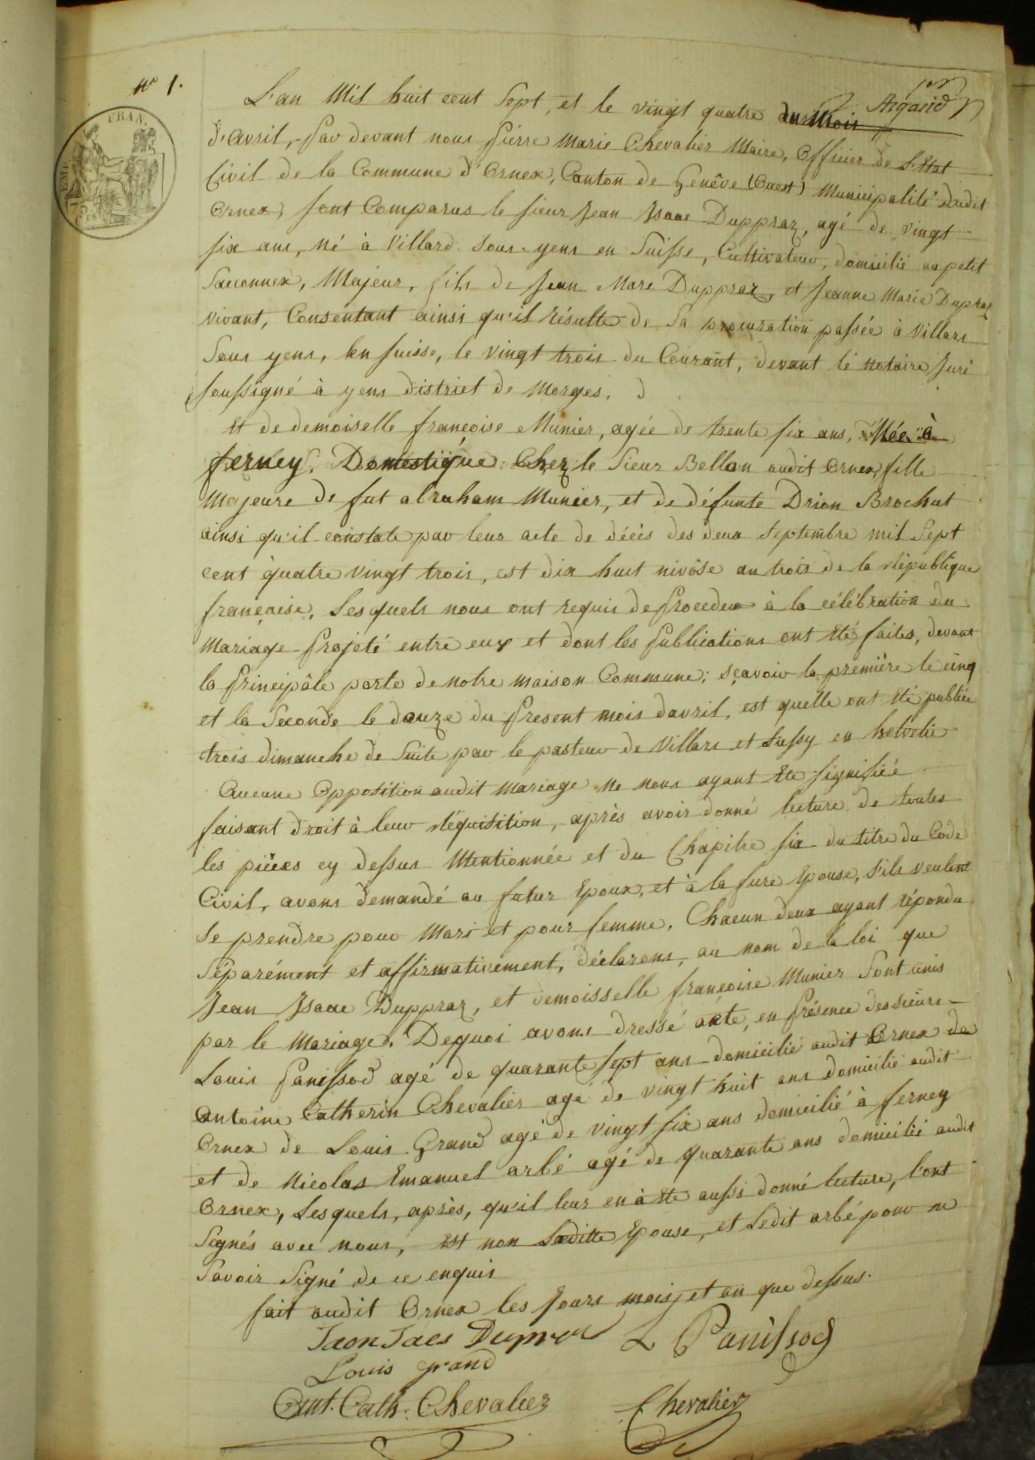 n° 1.
Argand
L'an Mil huit cent Sept, et le vingt quatre du Mois
d'avril, par devant nous pierre Marie Chevalier Maire, officier de L'Etat
Civil de la Commune d'Ornex, Canton de Genêve (Ouest) Municipalité dudit
Ornex, sont Comparus le sieur Jean Isaac Duppraz, agé de vingt
six ans, né à Villard Sous yens en Suisse, Cultivateur, domicilié au petit
Saconnex, Majeur, fils de Jean Marc Duppraz, et Jeanne Marie Dupraz
vivant, Consentant ainsi qu'il résulte de Sa procuration passée à Villars
Sous yens, en suisse, le vingt trois du Courant, devant le notaire Juré
soussigné à yens district de Morges.
Et de demoiselle francoise Munier, agée de trente six ans, Née à
ferney, Domestique Chez le Sieur Bellon audit Ornex, fille
Majeure de fut abraham Munier, et de défunte Drion Brochut
ainsi qu'il constate par leur acte de décès des deux Septembre mil Sept
cent quatre vingt trois, est dix huit nivôse an trois de la république
française. Lesquels nous ont requis de proceder à la célébration du
Mariage projeté entre eux et dont les publications ont été faites, devant
la principâle porte de notre maison Commune; sçavoir la première le cinq
et la Seconde le douze du present mois d'avril. est quelle ont été publiée
trois dimanche de Suite par le pasteur de Villars et Lussy en helvetie
Aucune Opposition audit mariage ne nous ayant été signifiée
faisant droit à leur réquisition, après avoir donné lecture de toutes
les pièces cy dessus Mentionnée et du Chapitre six du titre du Code
Civil, avons demandé au futur Epoux, et à la fure Epouse, s'ils veulent
Se prendre pour Mari et pour femme. Chacun deux ayant répondu
Séparément et affirmativement, déclarons, au nom de la loi que
Jean Isaac Duppraz, et demoisselle francoise Munier Sont unis
par le Mariage. Dequoi avons dressé acte, en présence des sieurs
Louis Panissod agé de quarante sept ans domicilié audit Ornex de
Antoine Catherin Chevalier agé de vingt huit ans domicilié audit
Ornex de Louis Grand agé de vingt six ans domicilié à ferney
et de Nicolas Emanuel arbé agé de quarante ans domicilié audit
Ornex, Lesquels, après, qu'il leur en à été aussi donné lecture, l'ont
Signés avec nous, est non Laditte Epouse, et Ledit arbé pour ne
Savoir Signé de ce enquis
fait audit Ornex les Jours mois, et an que dessus.
L Panissod
Louis grand
Ant. Cath. Chevalier
Chevalier